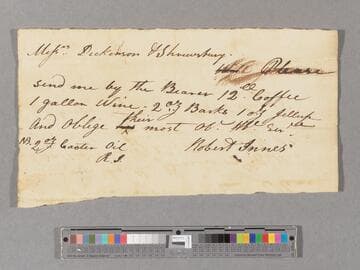 Messrs. Dickinson & Shrewsbury.
Please
send me by the Bearer 12 lb Coffee
1 gallon Wine 2 oz Barks 1 oz Jellup
And Oblige their most Ob. Hle Servt
Robert Innes
NB. 2 oz Castor Oil
R. I.